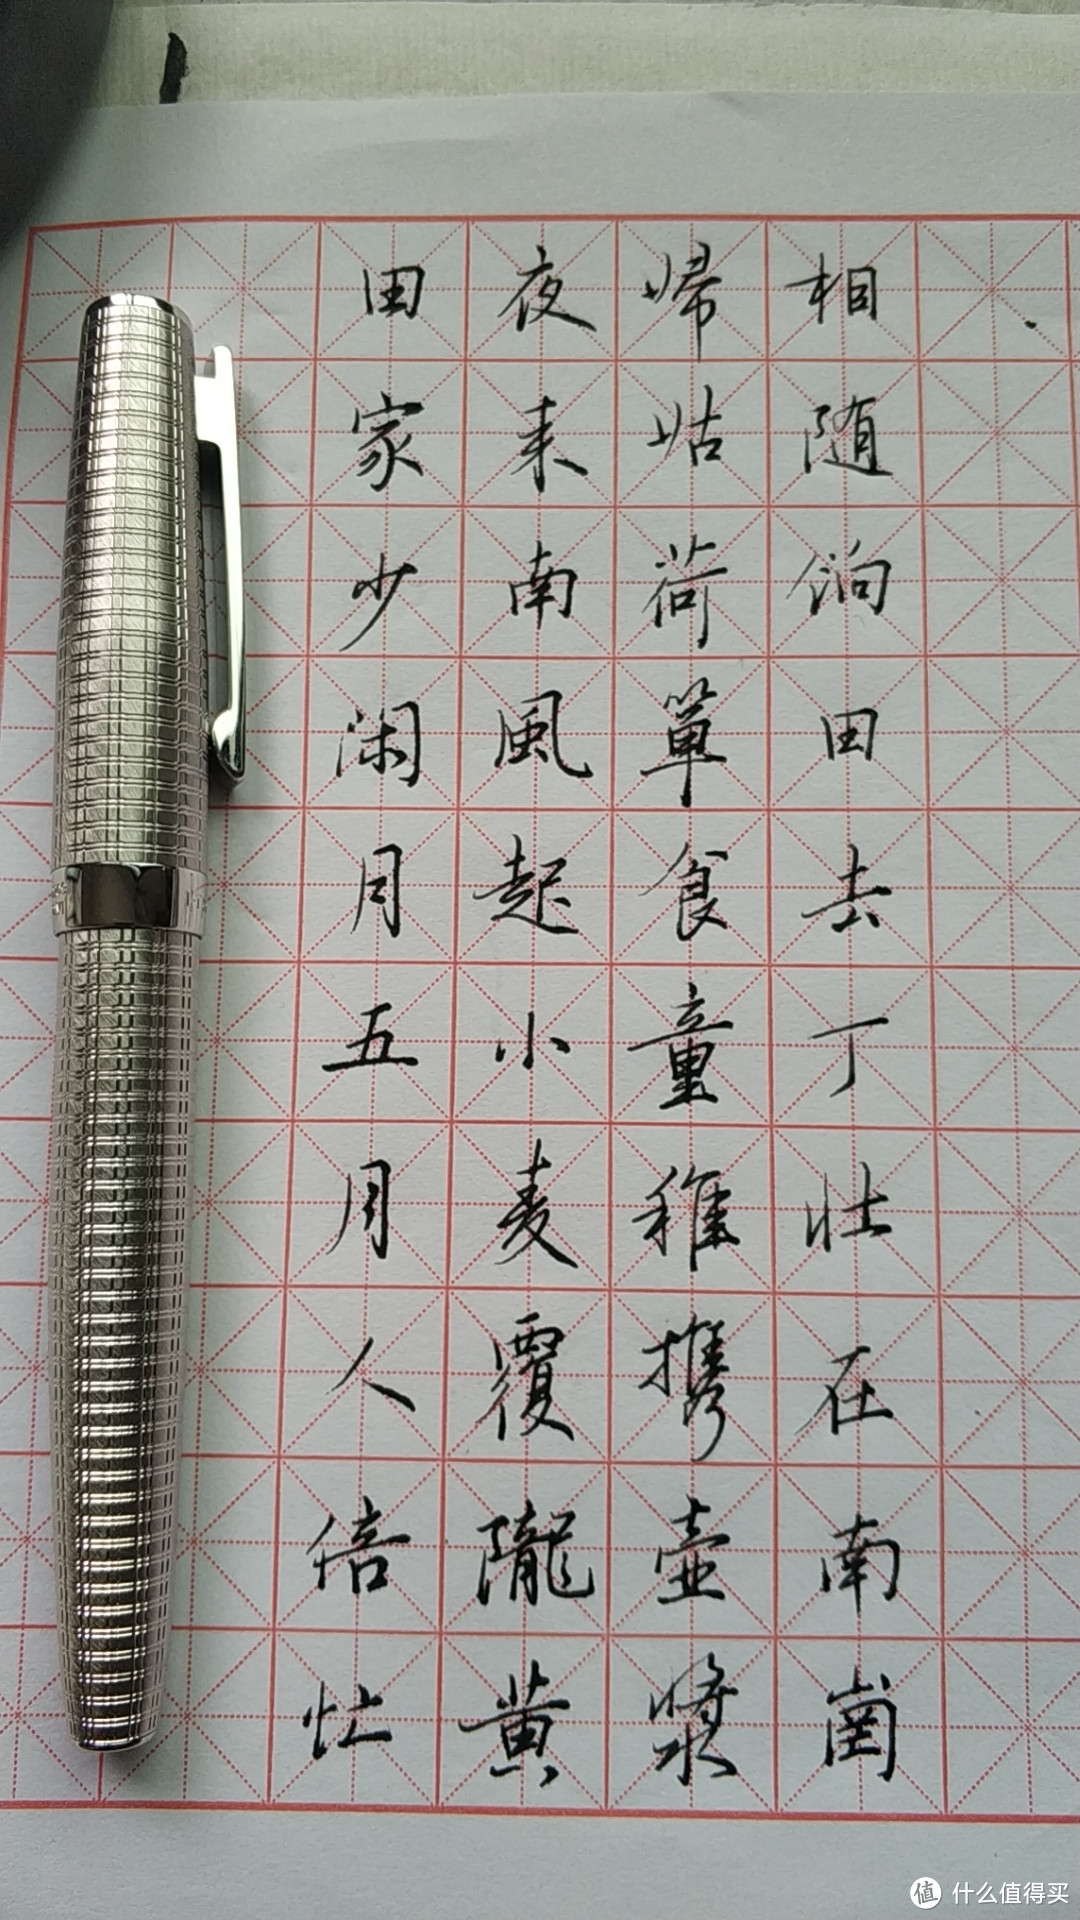 田家少闲月五月人倍忙
夜来南風起小麦覆隴黄
婦姑荷箪食童稚携壶漿
相随餉田去丁壮在南崗
值 什么值得买